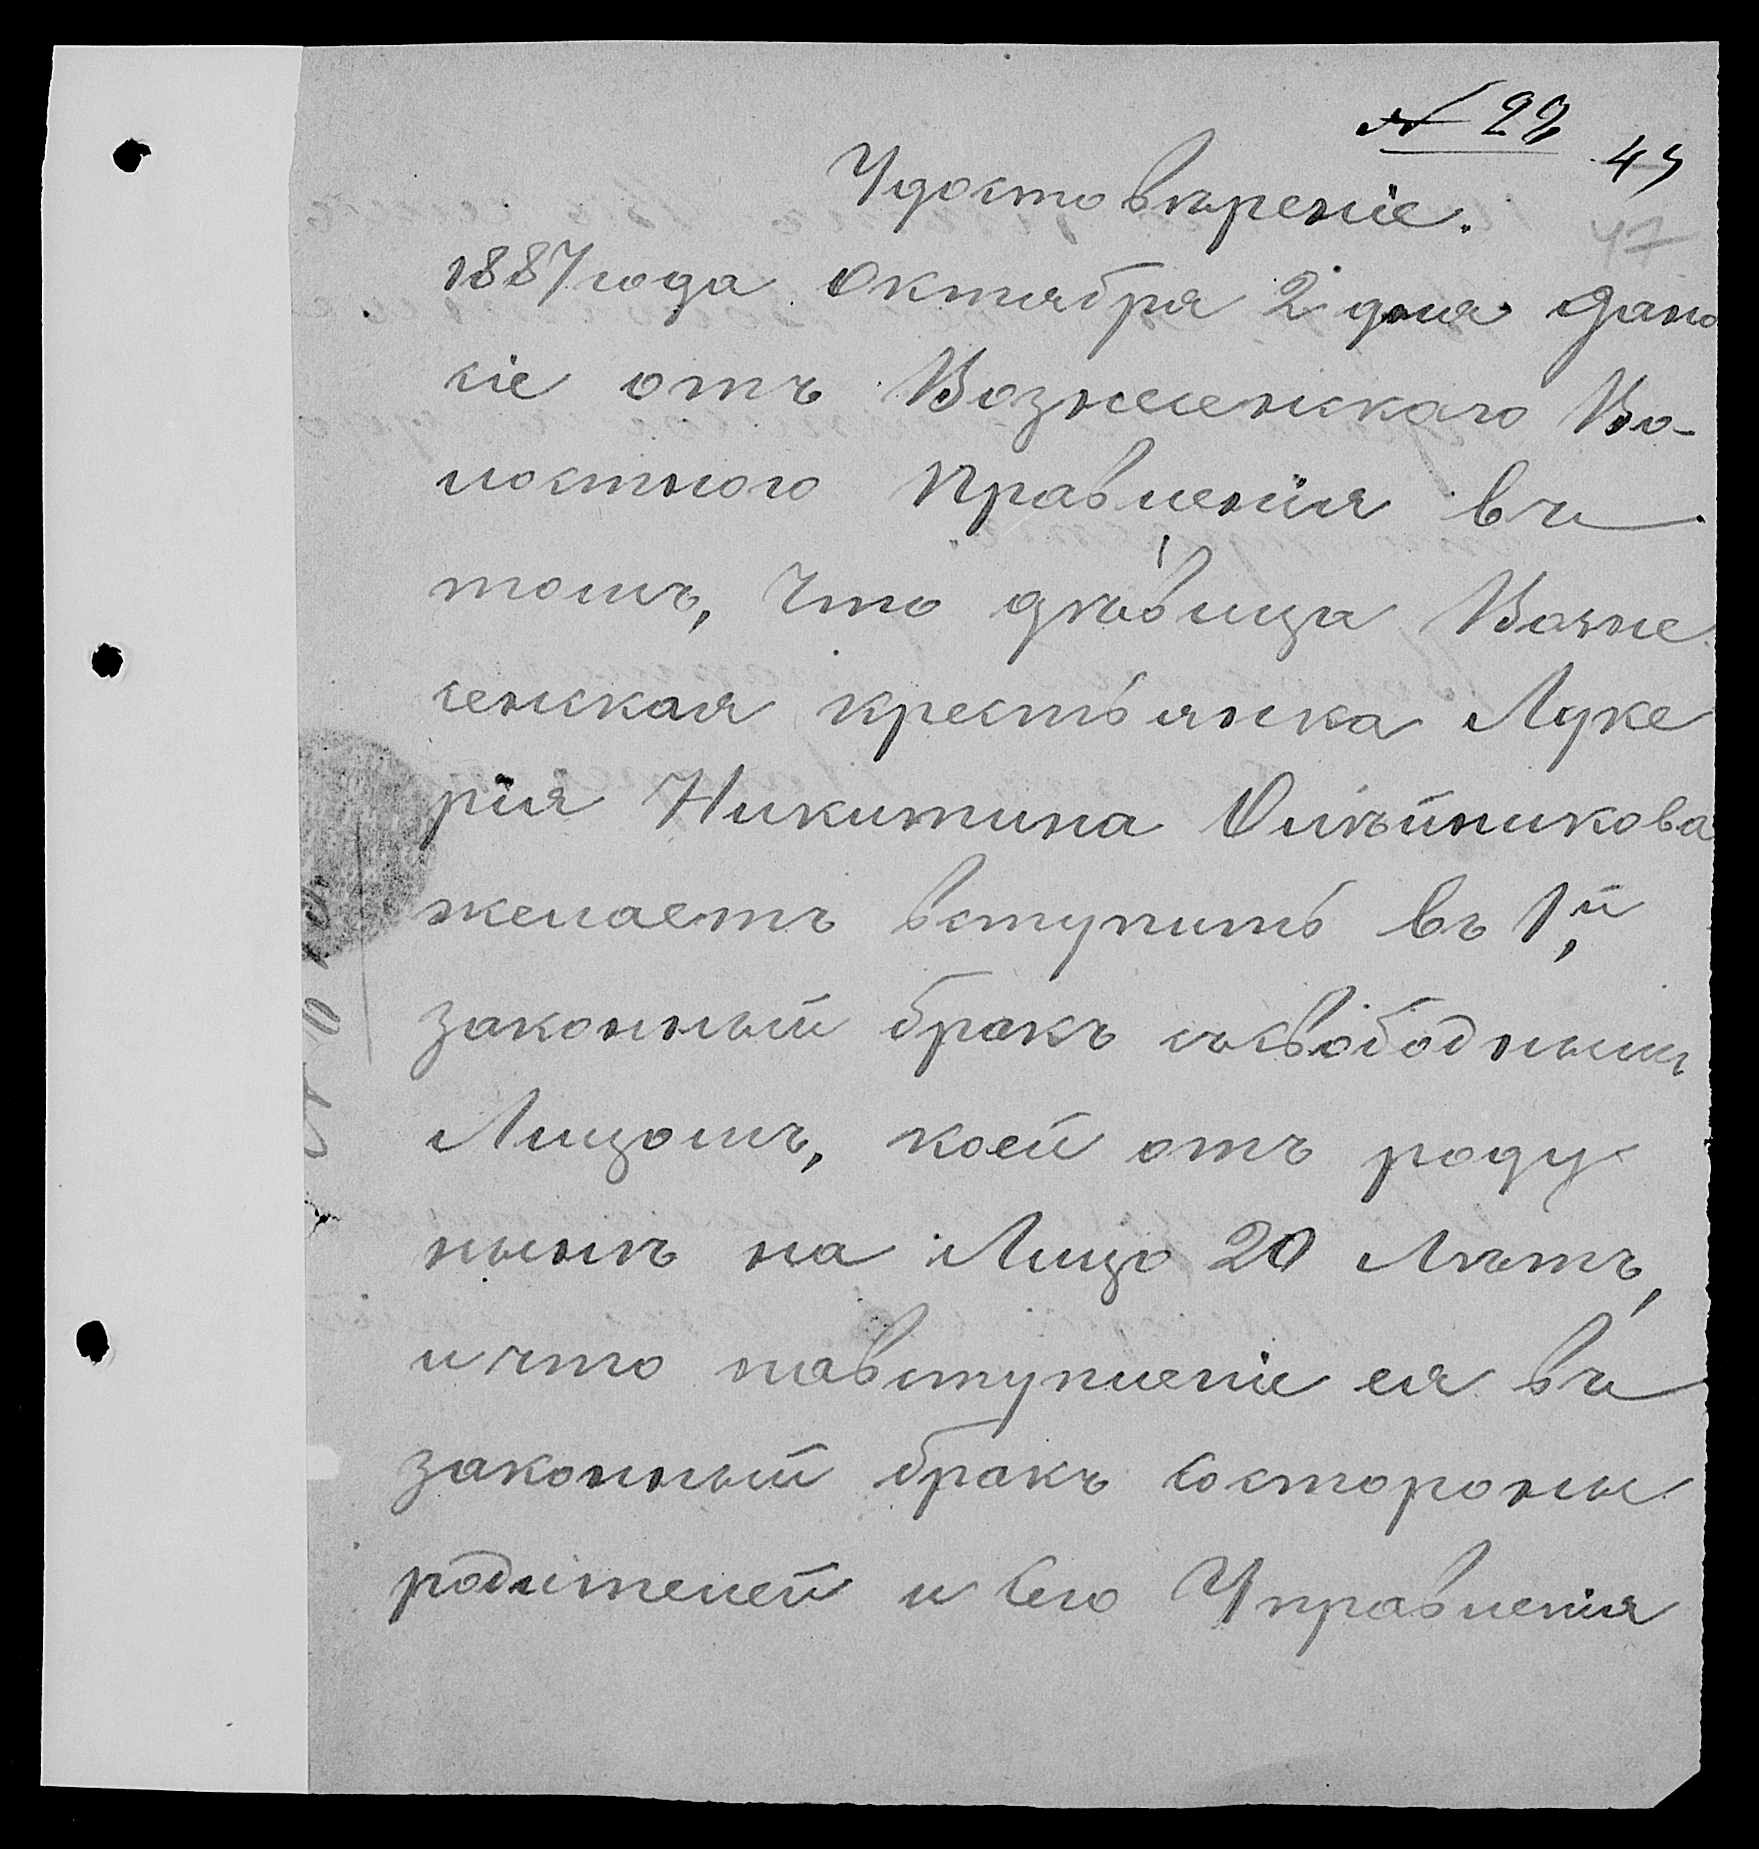 № 22
45
47
Удостовѣреніе.
1887 года Октября 2 дня дано
сіе отъ Вознесенскаго Во-
лостного Правленія въ
томъ, что дѣвица Возне
сенская крестьянка Луке
рія Никитина Олѣйникова
желаетъ вступить въ 1й,
законный бракъ съ свободнымъ
Лицомъ, коей отъ роду
нынѣ на Лицо 20 Лѣтъ,
и что навступленіе ея въ
законный бракъ состороны
родителей и сего Управленія